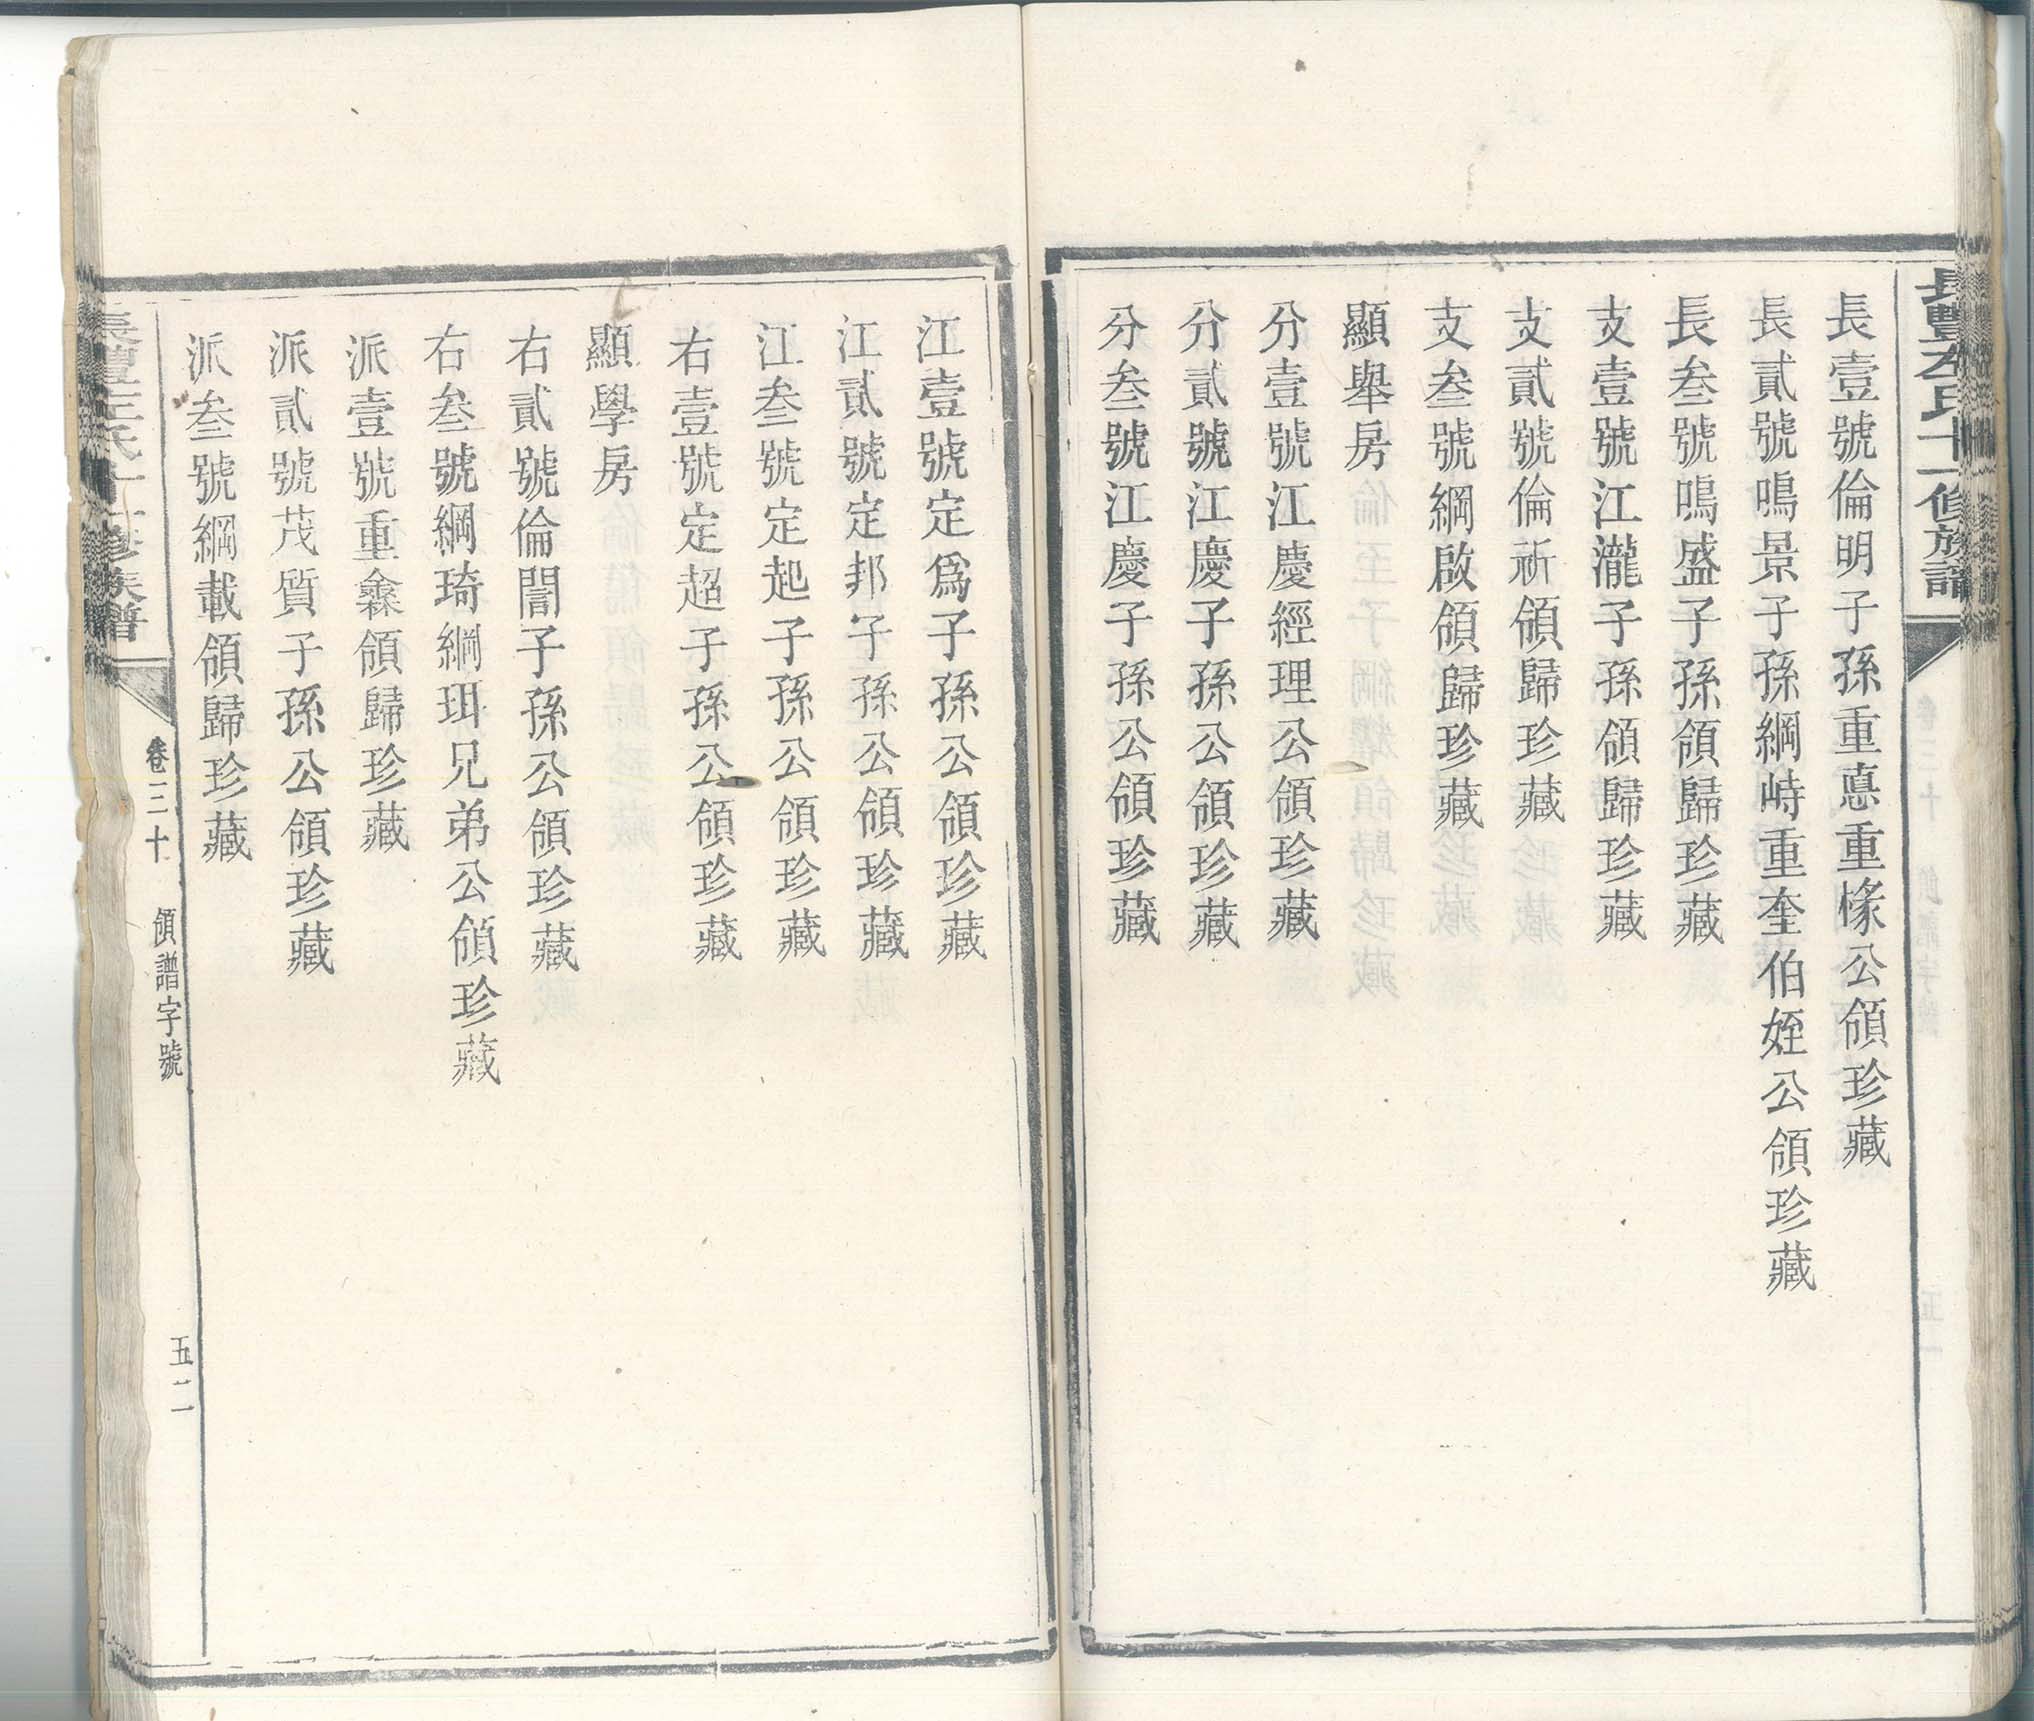 長豐左氏十一修族譜
長壹號倫明子孫重惪重橡公領珍藏
長貳號鳴景子孫綱峙重奎伯姪公領珍藏
長叁號鳴盛子孫領歸珍藏
支壹號江瀧子孫領歸珍藏
支貳號倫祈領歸珍藏
支叁號綱啟領歸珍藏
顯舉房
分壹號江慶經理公領珍藏
分貳號江慶子孫公領珍藏
分叁號江慶子孫公領珍藏
江壹號定爲子孫公領珍藏
江貳號定邦子孫公領珍藏
江叁號定起子孫公領珍藏
右壹號定超子孫公領珍藏
顯學房
右貳號倫誾子孫公領珍藏
右叁號綱琦綱珥兄弟公領珍藏
派壹號重鑫領歸珍藏
派貳號茂質子孫公領珍藏
派叁號綱載領歸珍藏
長豐左氏十一修族譜
卷三十 領譜字號 五二